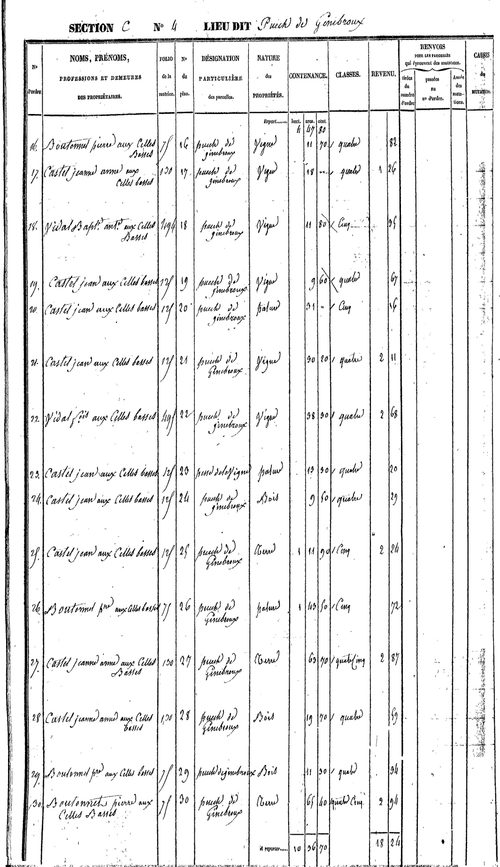 SECTION C No 4 LIEU DIT Puech de Génebroux
No d'ordre. NOMS, PRÉNOMS, PROFESSIONS ET DEMEURES DES PROPRIÉTAIRES. FOLIO de la matrice. No du plan. DÉSIGNATION PARTICULIÈRE des parcelles. NATURE des PROPRIÉTÉS. CONTENANCE. CLASSES. REVENU. RENVOIS
Report 4 67 80
16. Boutonnet pierre aux Celles Basses 75 16 puech de génebroux Vigne 11 70 quatre 82
17. Castel jeanne anne aux Celles basses 130 17 puech de génebroux Vigne 18 quatre 1 26
18. Vidal Bapt. ant. aux Celles Basses 18 puech de génebroux Vigne 11 80 Cinq 35
19. Castel jean aux Celles basses 125 19 puech de génebroux Vigne 9 60 quatre 67
20. Castel jean aux Celles basses 125 20 puech de génebroux pature 31 Cinq 16
21. Castel jean aux Celles basses 125 21 puech de Génebroux Vigne 30 20 quatre 2 11
22. Vidal aux Celles basses 22 puech de génebroux Vigne 38 30 quatre 2 68
23. Castel jean aux Celles basses 125 23 pature 13 30 quatre 20
24. Castel jean aux Celles basses 125 24 puech de génebroux Bois 9 50 quatre 29
25. Castel jean aux Celles basses 125 25 puech de Génebroux Terre 1 11 90 Cinq 2 24
26. Boutonnet pre aux Celles basses 75 26 puech de Génebroux pature 1 43 50 Cinq 72
27. Castel jeanne anne aux Celles Basses 130 27 puech de Génebroux Terre 63 70 quatre Cinq 2 87
28 Castel jeanne anne aux Celles basses 130 28 puech de Génebroux Bois 19 70 quatre 59
29. Boutonnet pre aux Celles basses 75 29 puech de génebroux Bois 11 30 quatre 34
30. Boutonnet pierre aux Celles Basses 75 30 puech de Génebroux Terre 65 40 quatre Cinq 2 94
A reporter 10 36 70 18 24